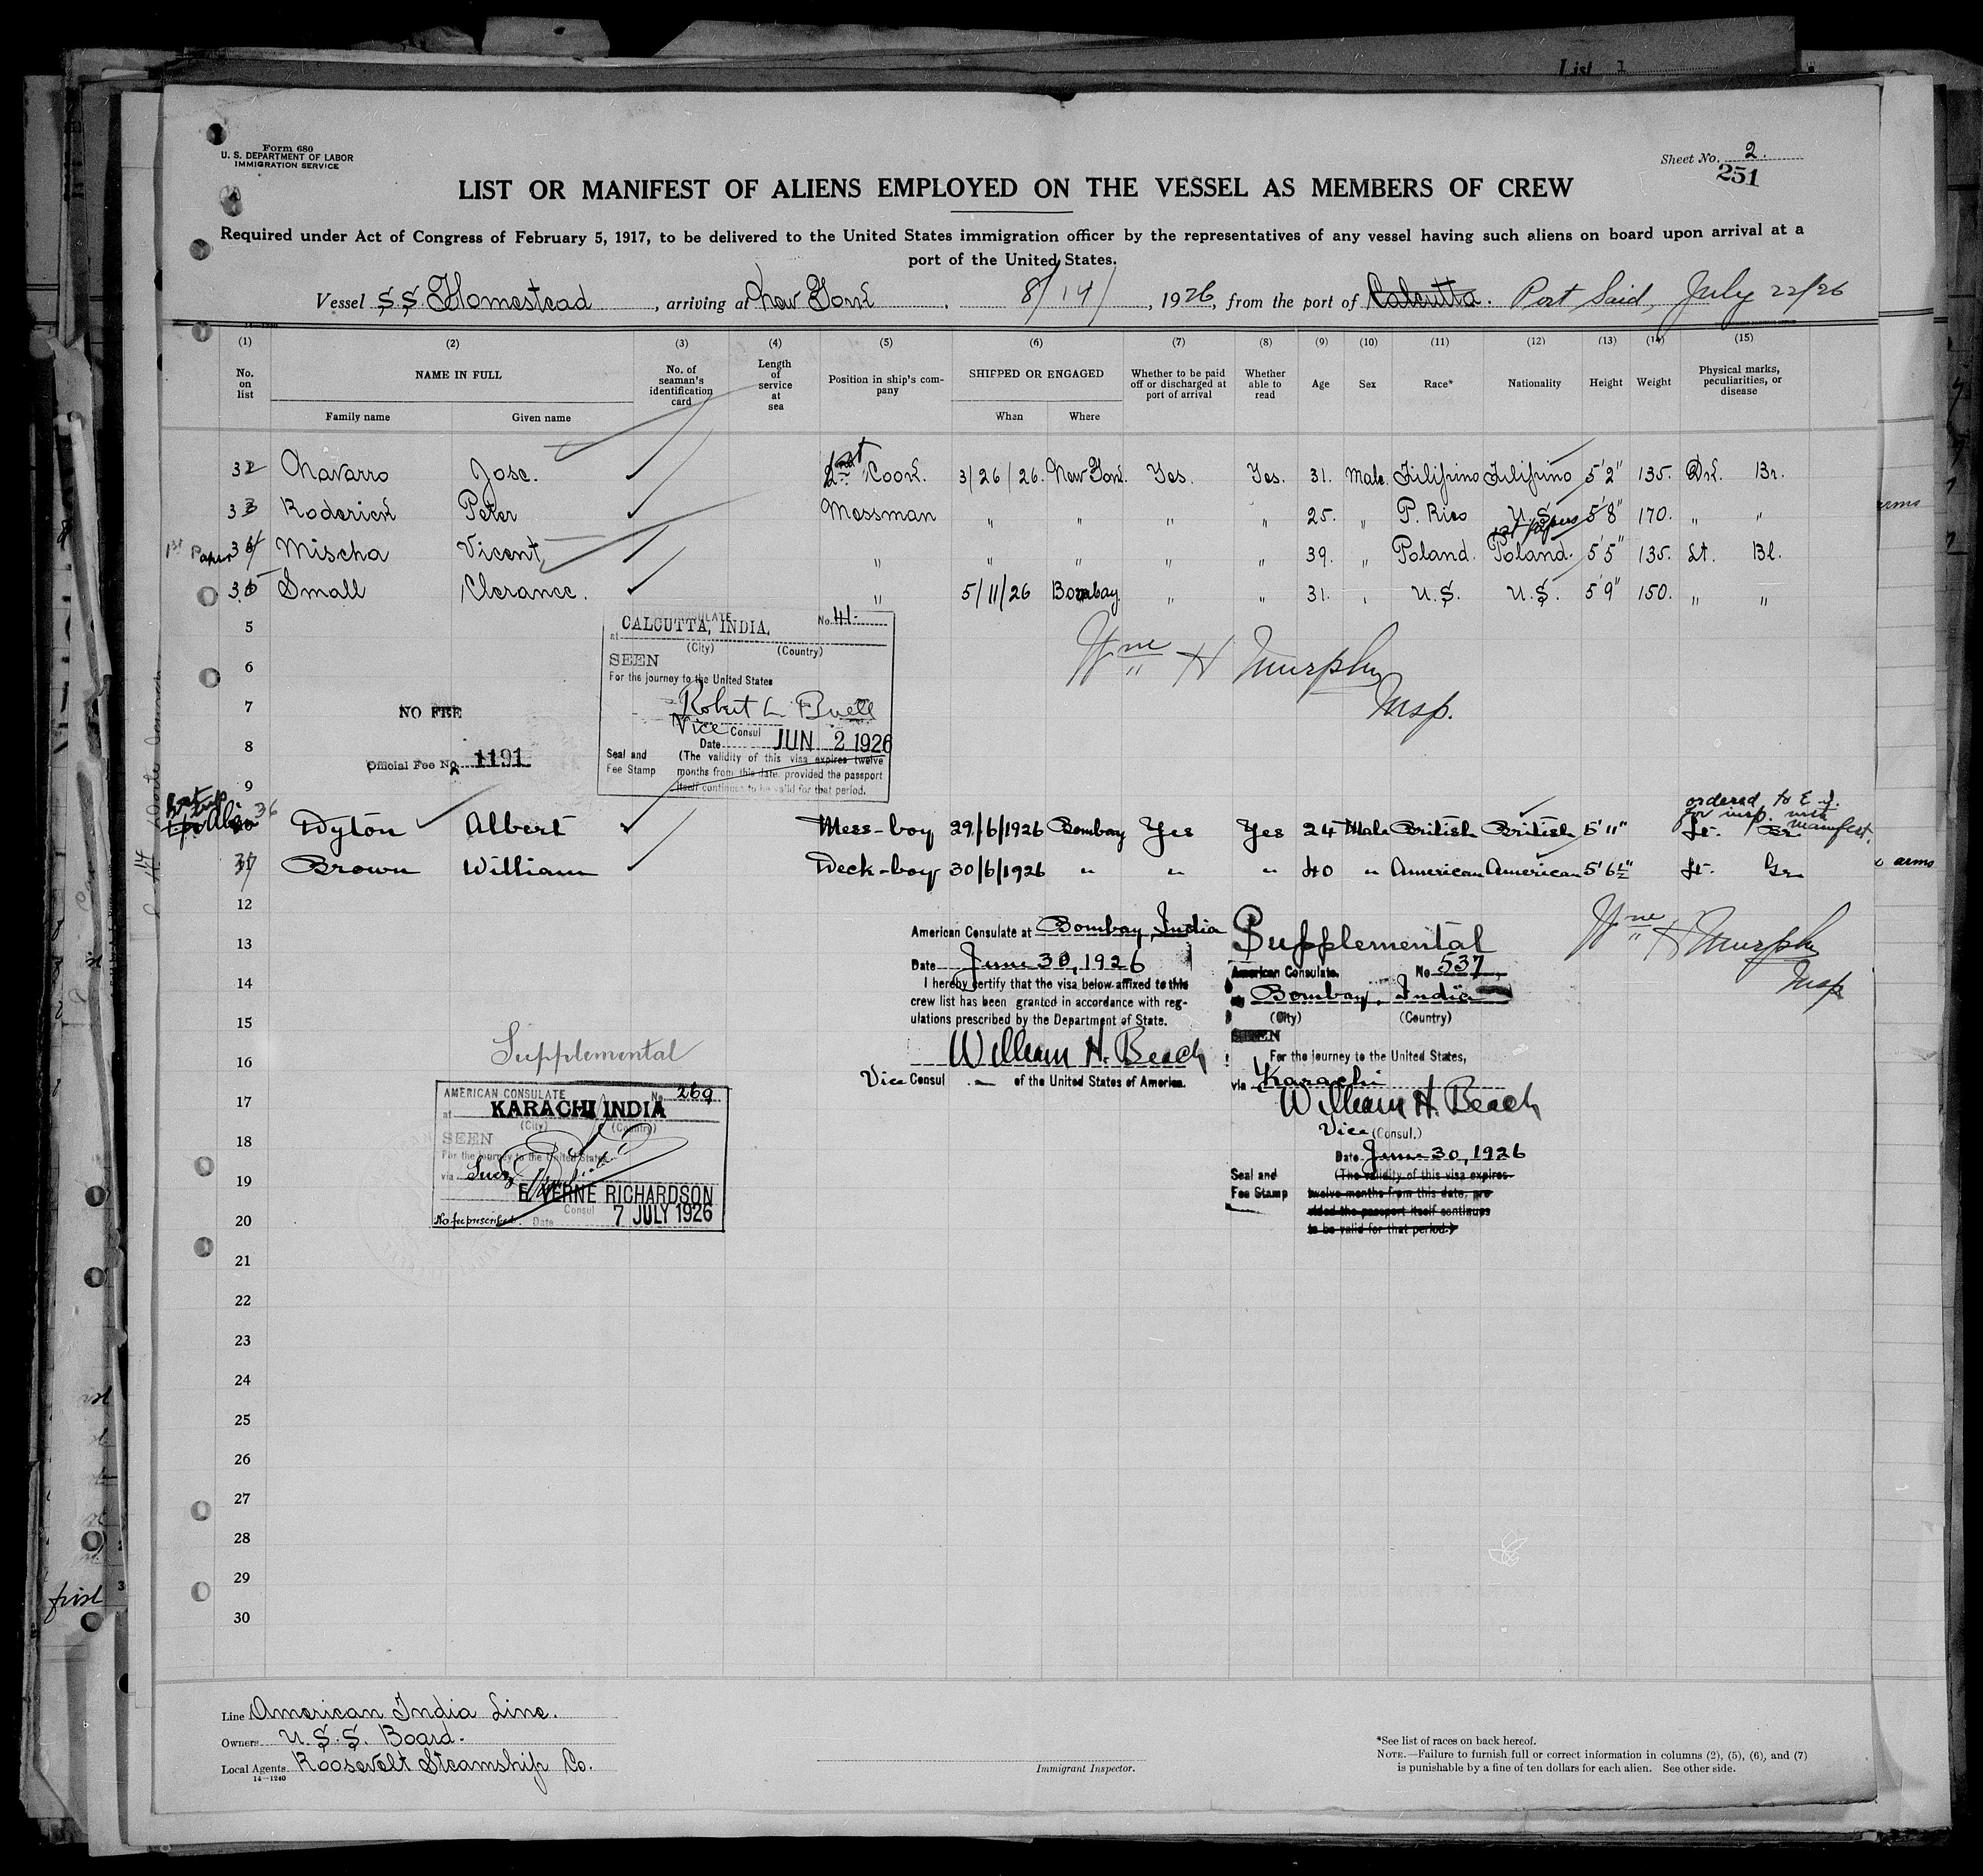 List 1
Form 680
U. S. DEPARTMENT OF LABOR
IMMIGRATION SERVICE
Sheet No. 2.
251
LIST OR MANIFEST OF ALIENS EMPLOYED ON THE VESSEL AS MEMBERS OF CREW
Required under Act of Congress of February 5, 1917, to be delivered to the United States immigration officer by the representatives of any vessel having such aliens on board upon arrival at a
port of the United States.
Vessel S.S. Homestead, arriving at New York. 8/14/, 1926, from the port of Calcutta. Port Said, July 22/26
(1) (2) (3) (4) (5) (6) (7) (8) (9) (10) (11) (12) (13) (14) (15)
No. on list
NAME IN FULL
Family name Given name
No. of seaman's identification card
Length of service at sea
Position in ship's company
SHIPPED OR ENGAGED
When Where
Whether to be paid off or discharged at port of arrival
Whether able to read
Age
Sex
Race*
Nationality
Height
Weight
Physical marks, peculiarities, or disease
32 Navarro Jose. Cook. 3/26/26. New York. Yes. Yes. 31. Male. Filipino Filipino 5'2" 135. Drk. Br.
33 Roderick Peter Messman " " " " 25. " P. Rico U.S. 5'8" 170. " "
1st papers
1st Paper 34 Mischa Vicent, " " " " " 39. " Poland. Poland. 5'5" 135. Lt. Bl.
35 Small Clerance. " 5/11/26 Bombay. " " 31. " U.S. U.S. 5'9" 150. " "
arms
5
CALCUTTA, INDIA. No. 41.
at (City) (Country)
SEEN
For the journey to the United States
Robert L. Buell
Vice Consul
Date JUN 2 1926
Seal and Fee Stamp
(The validity of this visa expires twelve
months from this date, provided the passport
itself continues to be valid for that period.)
Wm H Murphy
Insp.
6
7
NO FEE
8
Official Fee No. 1191
9
ordered to E.I.
for insp.
manifest.
36 Dyton Albert Mess-boy 29/6/1926 Bombay Yes Yes 24 Male British British 5'11" Lt. Br
37 Brown William Deck-boy 30/6/1926 " " " 40 " American American 5'6½" Lt. Gr
arms
12
13
14
15
16
American Consulate at Bombay, India
Date June 30, 1926
I hereby certify that the visa below affixed to this
crew list has been granted in accordance with reg-
ulations prescribed by the Department of State.
William H. Beach
Vice Consul of the United States of America.
Supplemental
American Consulate. No 537
Bombay, India
(City) (Country)
SEEN
For the journey to the United States,
via Karachi
William H. Beach
Vice (Consul.)
Date June 30, 1926
Seal and Fee Stamp
(The validity of this visa expires
twelve months from this date, pro-
vided the passport itself continues
to be valid for that period.)
Wm H Murphy
Insp
Supplemental
AMERICAN CONSULATE No. 269
at KARACHI INDIA
(City) (Country)
SEEN
For the journey to the United States
via Suez
E. VERNE RICHARDSON
Consul
No fee prescribed. Date 7 JULY 1926
17
18
19
20
21
22
23
24
25
26
27
28
29
30
first
Line American India Line.
Owners U.S.S. Board.
Local Agents Roosevelt Steamship Co.
14—1240
Immigrant Inspector.
*See list of races on back hereof.
NOTE.—Failure to furnish full or correct information in columns (2), (5), (6), and (7)
is punishable by a fine of ten dollars for each alien. See other side.